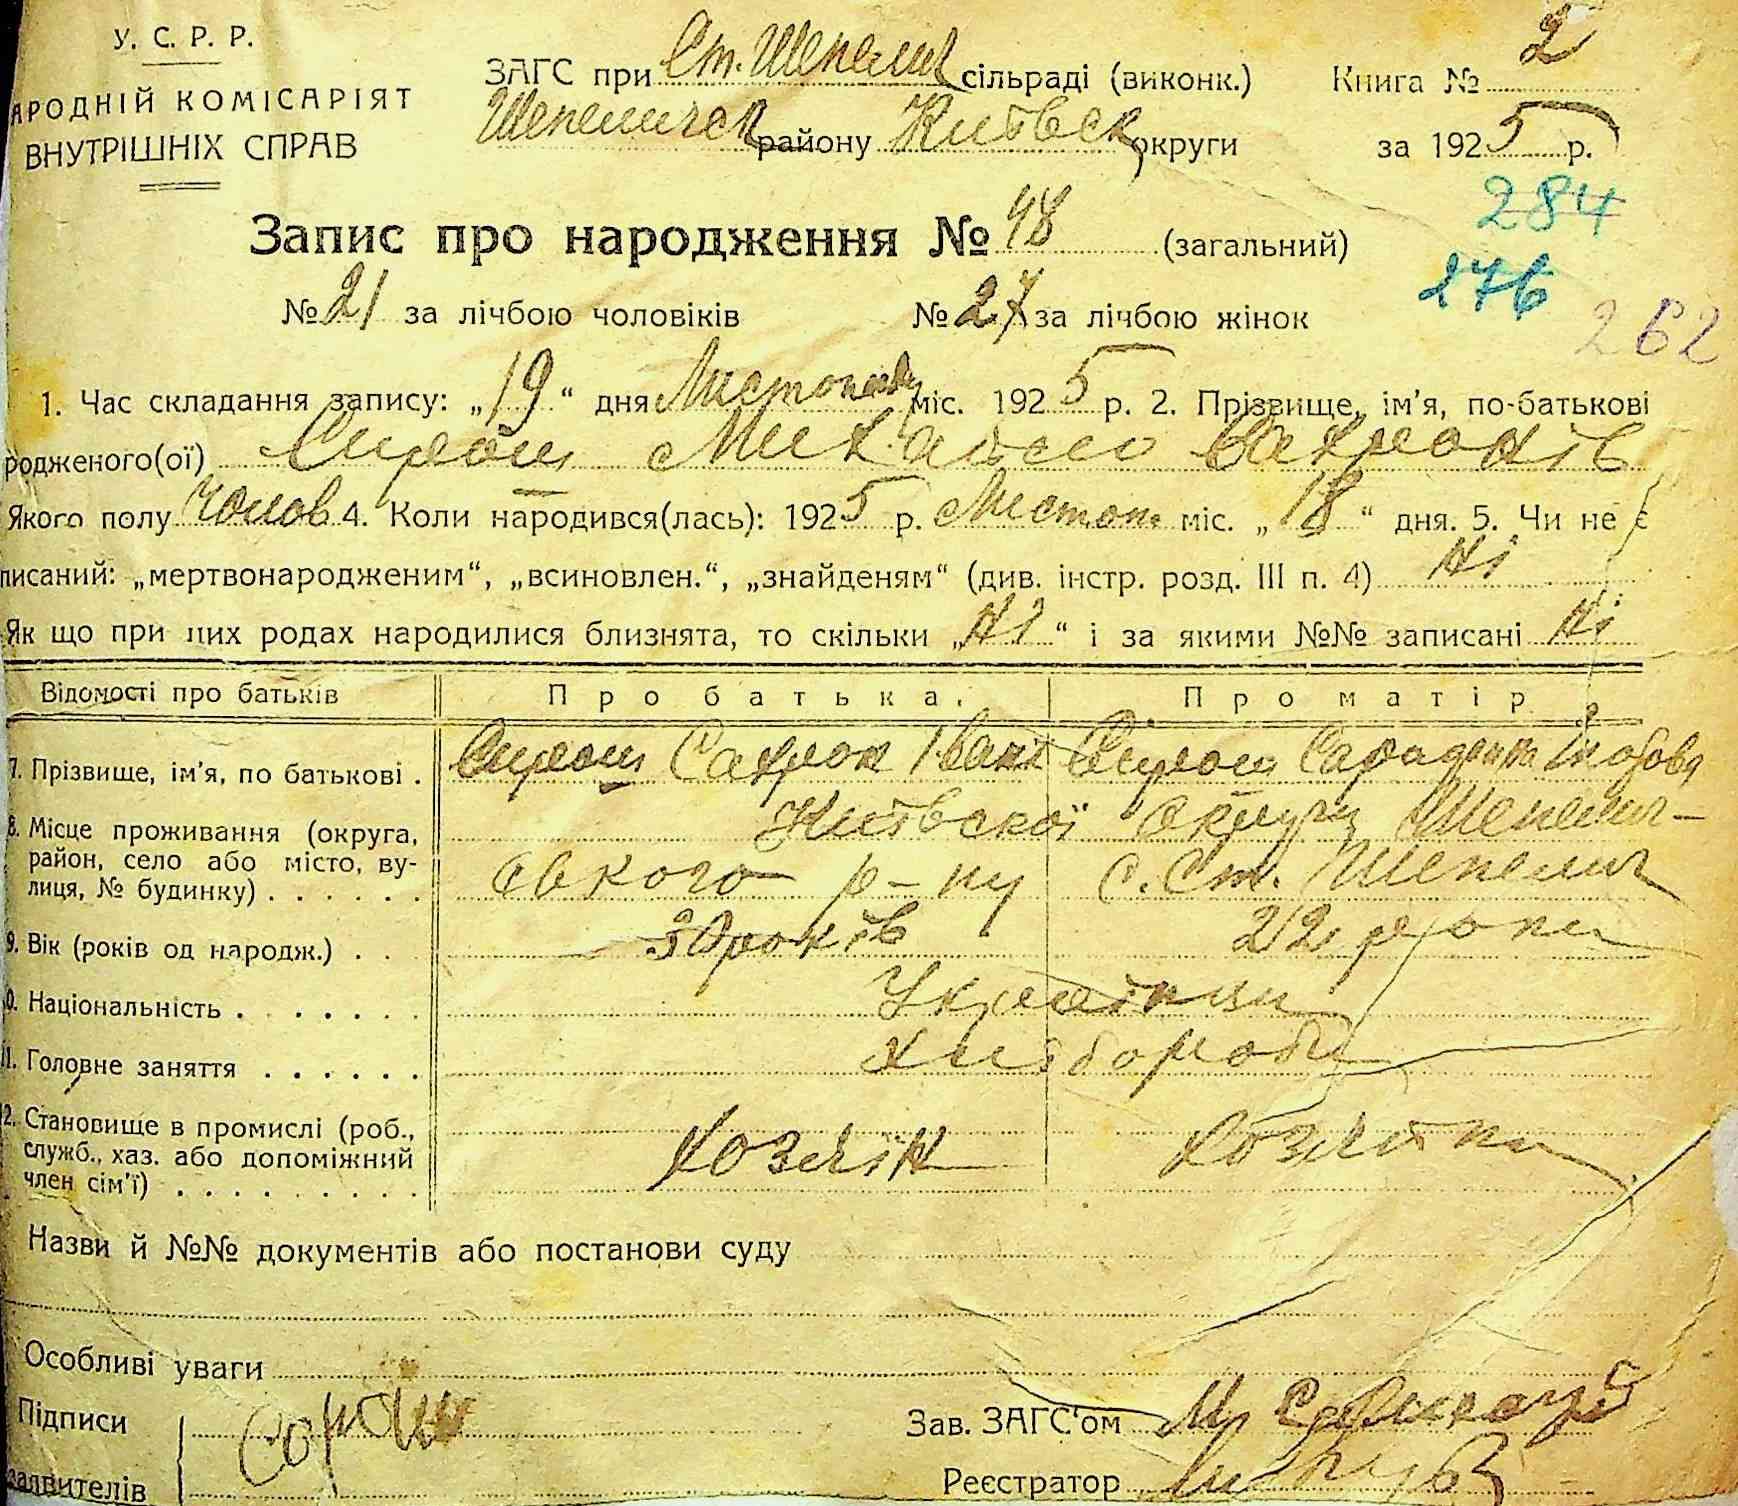 У. С. Р. Р.
АРОДНІЙ КОМІСАРІЯТ
ВНУТРІШНІХ СПРАВ
ЗАГС при Ст. Шепелич сільраді (виконк.) Книга № 2
Шепеличск району Київськ округи за 1925 р.
284
Запис про народження № 48 (загальний)
276
№ 21 за лічбою чоловіків № 27 за лічбою жінок
262
1. Час складання запису: „19“ дня Листопаду міс. 1925 р. 2. Прізвище, ім'я, по-батькові
родженого(ої) Михайло
Якого полу Чолов 4. Коли народився(лась): 1925 р. Листоп. міс. „18“ дня. 5. Чи не є
писаний: „мертвонародженим“, „всиновлен.“, „знайденям“ (див. інстр. розд. III п. 4) Ні
Як що при цих родах народилися близнята, то скільки „Ні“ і за якими №№ записані Ні
Відомості про батьків Про батька. Про матір
7. Прізвище, ім'я, по батькові . Іван
8. Місце проживання (округа, Київської округи Шепелич-
район, село або місто, ву- ського р-ну с. Ст. Шепелич
лиця, № будинку) . . . . . .
9. Вік (років од народж.) . . 30 років 22 роки
0. Національність . . . . . . . Українці
11. Головне заняття . . . . . . хліборобі
12. Становище в промислі (роб.,
служб., хаз. або допоміжний хозяїн хозяйка
член сім'ї) . . . . . . . . .
Назви й №№ документів або постанови суду
Особливі уваги
Підписи
Зав. ЗАГС'ом
заявителів
Реєстратор